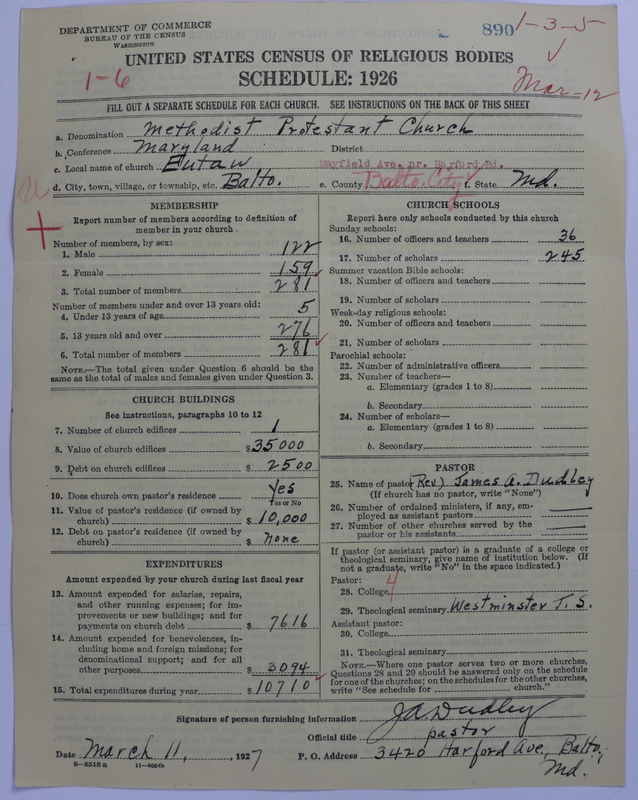 DEPARTMENT OF COMMERCE
BUREAU OF THE CENSUS
WASHINGTON
890
1-3-5
UNITED STATES CENSUS OF RELIGIOUS BODIES
1-6
SCHEDULE: 1926
Mar-12
FILL OUT A SEPARATE SCHEDULE FOR EACH CHURCH. SEE INSTRUCTIONS ON THE BACK OF THIS SHEET
a. Denomination Methodist Protestant Church
b. Conference Maryland District
c. Local name of church Eutaw Mayfield Ave. nr. Harford Rd.
d. City, town, village, or township, etc. Balto. e. County Balto City f. State Md.
MEMBERSHIP
Report number of members according to definition of
member in your church
Number of members, by sex:
1. Male 122
2. Female 159
3. Total number of members 281
Number of members under and over 13 years old:
4. Under 13 years of age 5
5. 13 years old and over 276
6. Total number of members 281
NOTE.—The total given under Question 6 should be
same as the total of males and females given under Question 3.
CHURCH BUILDINGS
See instructions, paragraphs 10 to 12
7. Number of church edifices 1
8. Value of church edifices $35000
9. Debt on church edifices $2500
10. Does church own pastor's residence Yes
Yes or No
11. Value of pastor's residence (if owned by
church) $10,000
12. Debt on pastor's residence (if owned by
church) $none
EXPENDITURES
Amount expended by your church during last fiscal year
13. Amount expended for salaries, repairs,
and other running expenses; for im-
provements or new buildings; and for
payments on church debt $7616
14. Amount expended for benevolences, in-
cluding home and foreign missions; for
denominational support; and for all
other purposes 3094
15. Total expenditures during year $10710
CHURCH SCHOOLS
Report here only schools conducted by this church
Sunday schools:
16. Number of officers and teachers 36
17. Number of scholars 245
Summer vacation Bible schools:
18. Number of officers and teachers
19. Number of scholars
Week-day religious schools:
20. Number of officers and teachers
21. Number of scholars
Parochial schools:
22. Number of administrative officers
23. Number of teachers—
a. Elementary (grades 1 to 8)
b. Secondary
24. Number of scholars—
a. Elementary (grades 1 to 8)
b. Secondary
PASTOR
25. Name of pastor (Rev) James A. Dudley
(If church has no pastor, write "None")
26. Number of ordained ministers, if any, em-
ployed as assistant pastors
27. Number of other churches served by the
pastor or his assistants
If pastor (or assistant pastor) is a graduate of a college or
theological seminary, give name of institution below. (If
not a graduate, write "No" in the space indicated.)
Pastor:
28. College 4
29. Theological seminary Westminster T. S.
Assistant pastor:
30. College
31. Theological seminary
NOTE.—Where one pastor serves two or more churches,
Questions 28 and 29 should be answered only on the schedule
for one of the churches; on the schedules for the other churches,
write "See schedule for church."
Signature of person furnishing information J.A. Dudley
Official title pastor
Date March 11, 1927 P. O. Address 3420 Harford Ave, Balto,
8—5518 a Md.